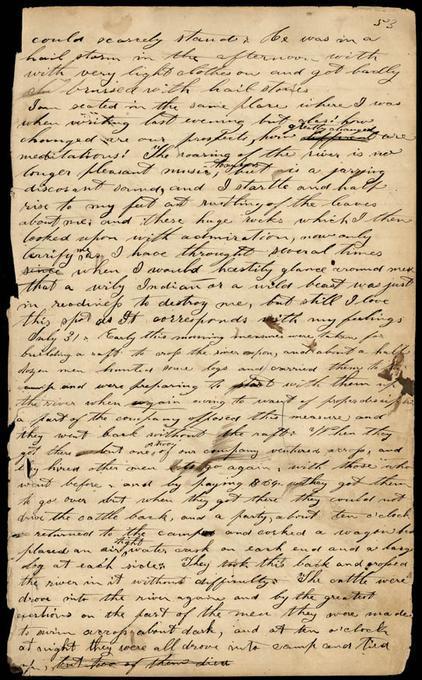 53
could scarcely stand. He was in a
hail storm in the afternoon with
with very light clothes on and got badly
bruised with hail stones
I am seated in the same place where I was
when writing last evening but alas! how
changed are our prospects, how different greatly changed are
meditations! The roaring of the river is no
longer pleasant music, but is a jarring
discordant sound, and I startle and half
rise to my feet at rustling of the leaves
about me; and these huge rocks which I then
looked upon with admiration, now only
terrify me, I have thought several times
since when I would hastily glance around me
that a wily Indian or a wild beast was just
in readiness to destroy me, but still I love
this spot as it corresponds with my feelings
July 31. Early this morning measures were taken for
building a raft to cross the river upon, and about a half
dozen men hunted some logs and carried them to
camp and were preparing to start with them up
the river when again owing to want of
a part of the company opposed this measure and
they went back without the raft. When they
got there but one of our company ventured across, and
hired other men to go again, with those who
went before, and by paying they got them
to go over but when they got there they could not
drive the cattle back, and a party, about ten o'clock
returned to the camp and corked a wagon bed
placed an air tight water cask on each end and a large
log at each side. They took this back and crossed
the river in it without difficulty. The cattle were
drove into the river again and by the greatest
exertions on the part of the men they were made
to swim across about dark, and at ten o'clock
at night they were all drove into camp and tied
up, but two of them died